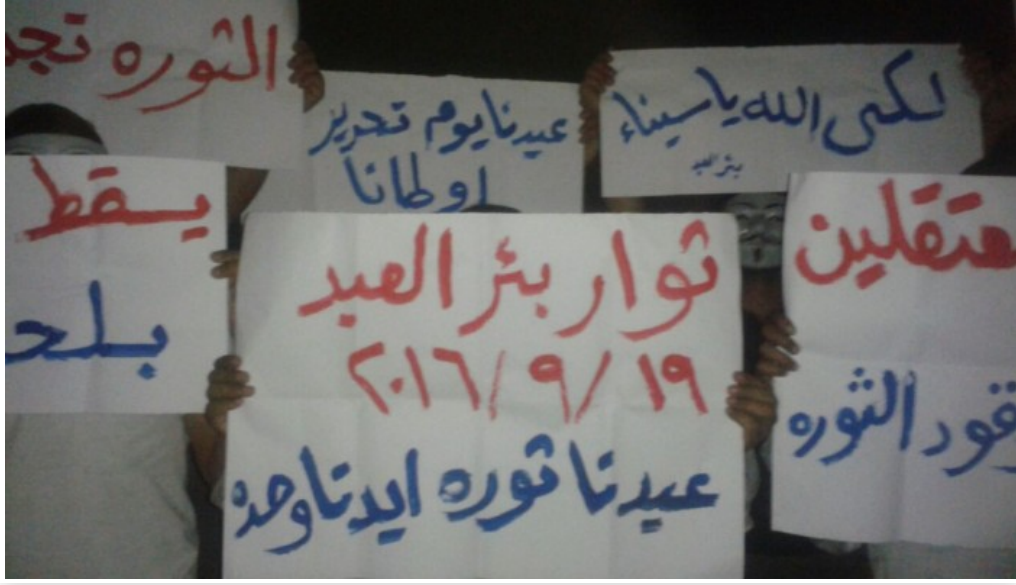 الثوره تجد
عيدنا يوم تحرير
اوطانا
لكي الله يا سيناء
بئر العبد
يسقط
بلحـ
ثوار بئر العبد
١٩/٩/٢٠١٦
عيدنا ثوره ايدنا وحده
معتقلين
قود الثوره